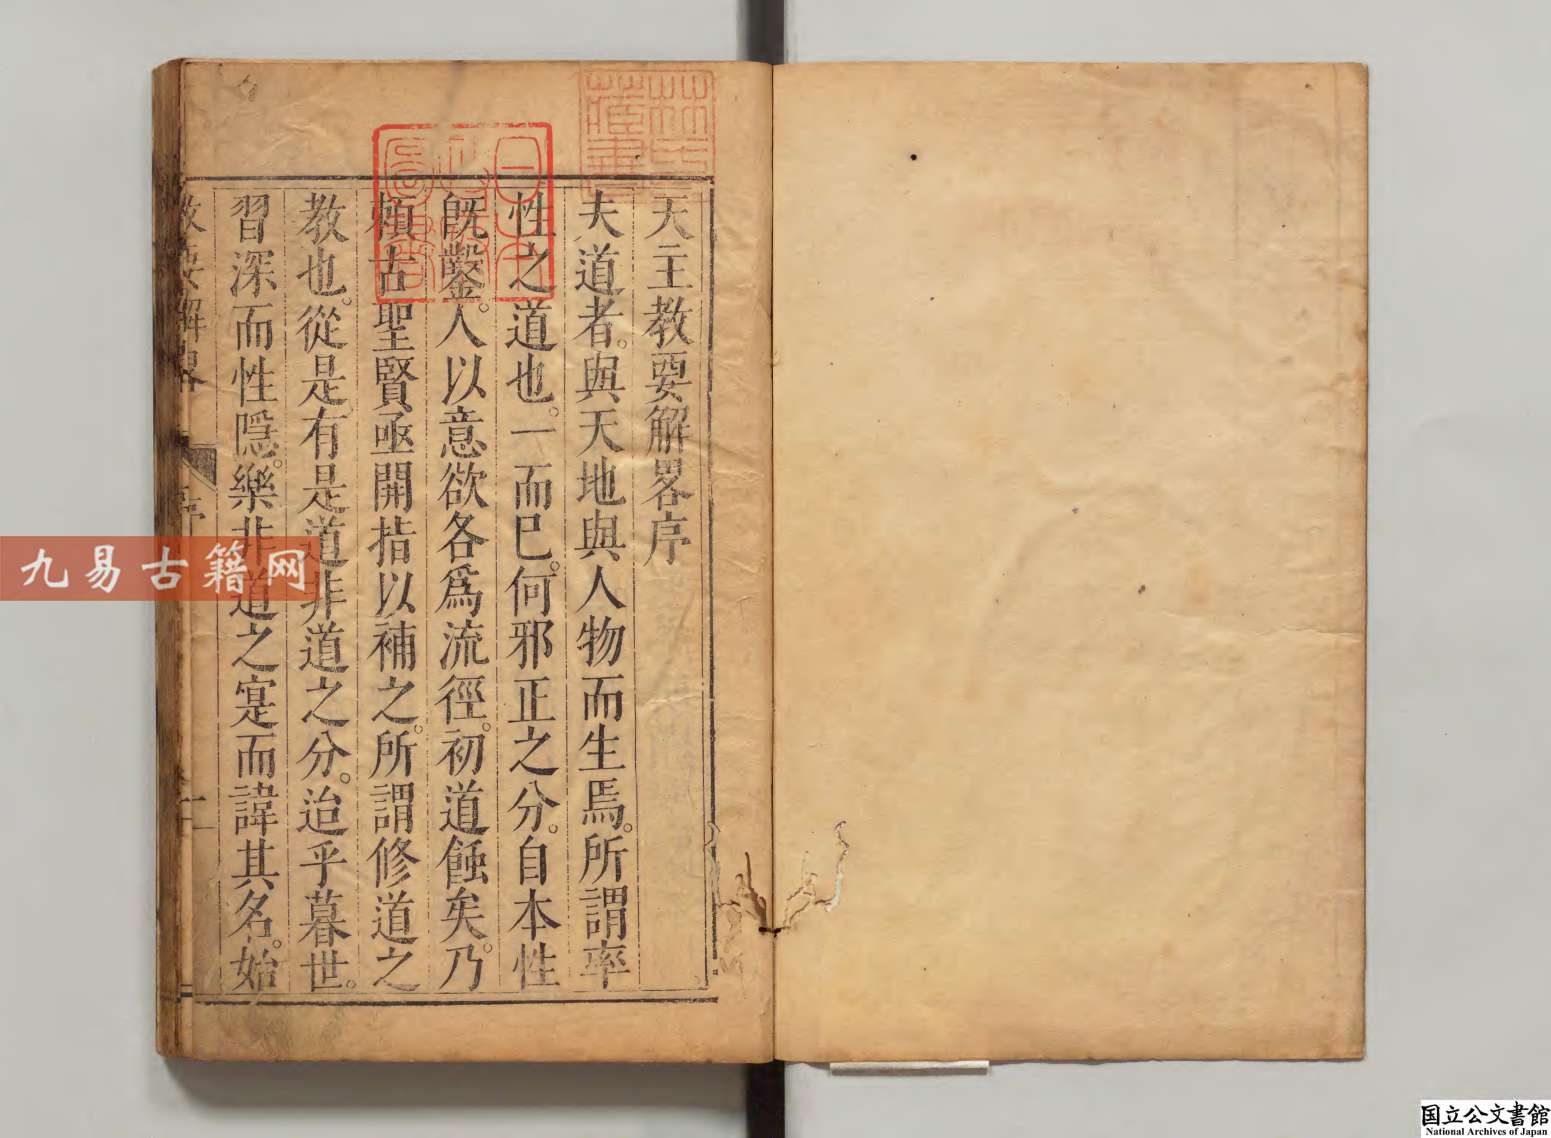 天主教要解畧序
夫道者。與天地與人物而生焉。所謂率
性之道也。一而已。何邪正之分。自本性
旣鑿。人以意欲各爲流徑。初道蝕矣。乃
頼古聖賢亟開指以補之。所謂修道之
教也。從是有是道非道之分。迨乎暮世。
習深而性隱。樂非道之寔而諱其名。始
教要解畧
序
一
林氏
藏書
日本
政府
圖書
九易古籍网
国立公文書館
National Archives of Japan